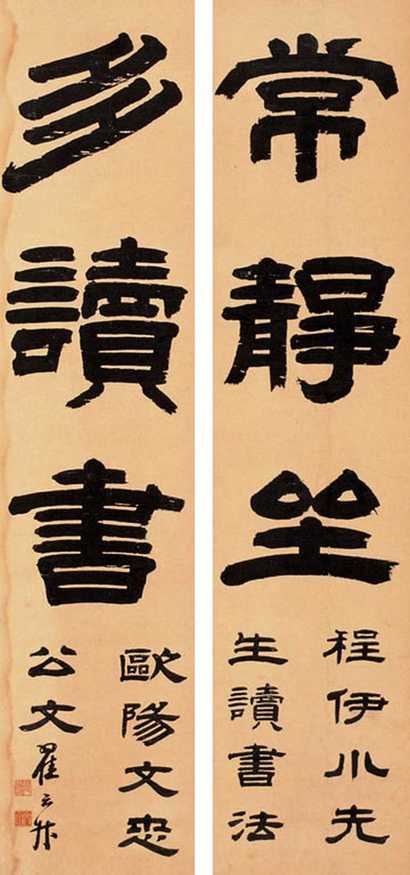 常靜坐
程伊川先
生讀書法
多讀書
歐陽文忠
公文翟云升